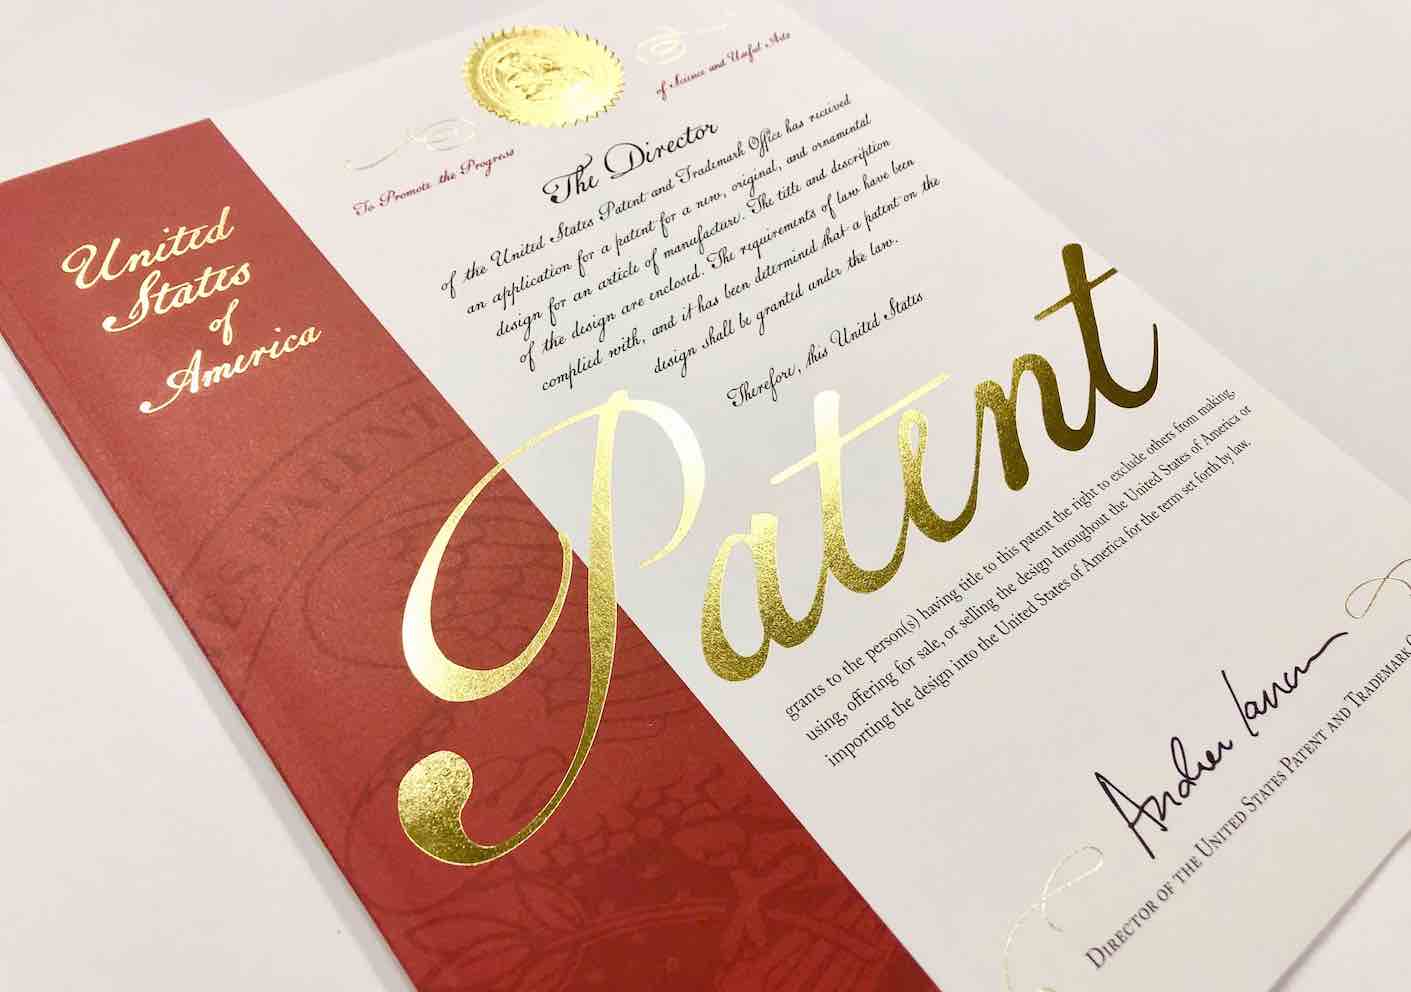 To Promote the Progress
of Science and Useful Arts
The Director
of the United States Patent and Trademark Office has received
an application for a patent for a new, original, and ornamental
design for an article of manufacture. The title and description
of the design are enclosed. The requirements of law have been
complied with, and it has been determined that a patent on the
design shall be granted under the law.
Therefore, this United States
United
States
of
America
PATENT
Patent
grants to the person(s) having title to this patent the right to exclude others from making,
using, offering for sale, or selling the design throughout the United States of America or
importing the design into the United States of America for the term set forth by law.
Andrei Iancu
Director of the United States Patent and Trademark